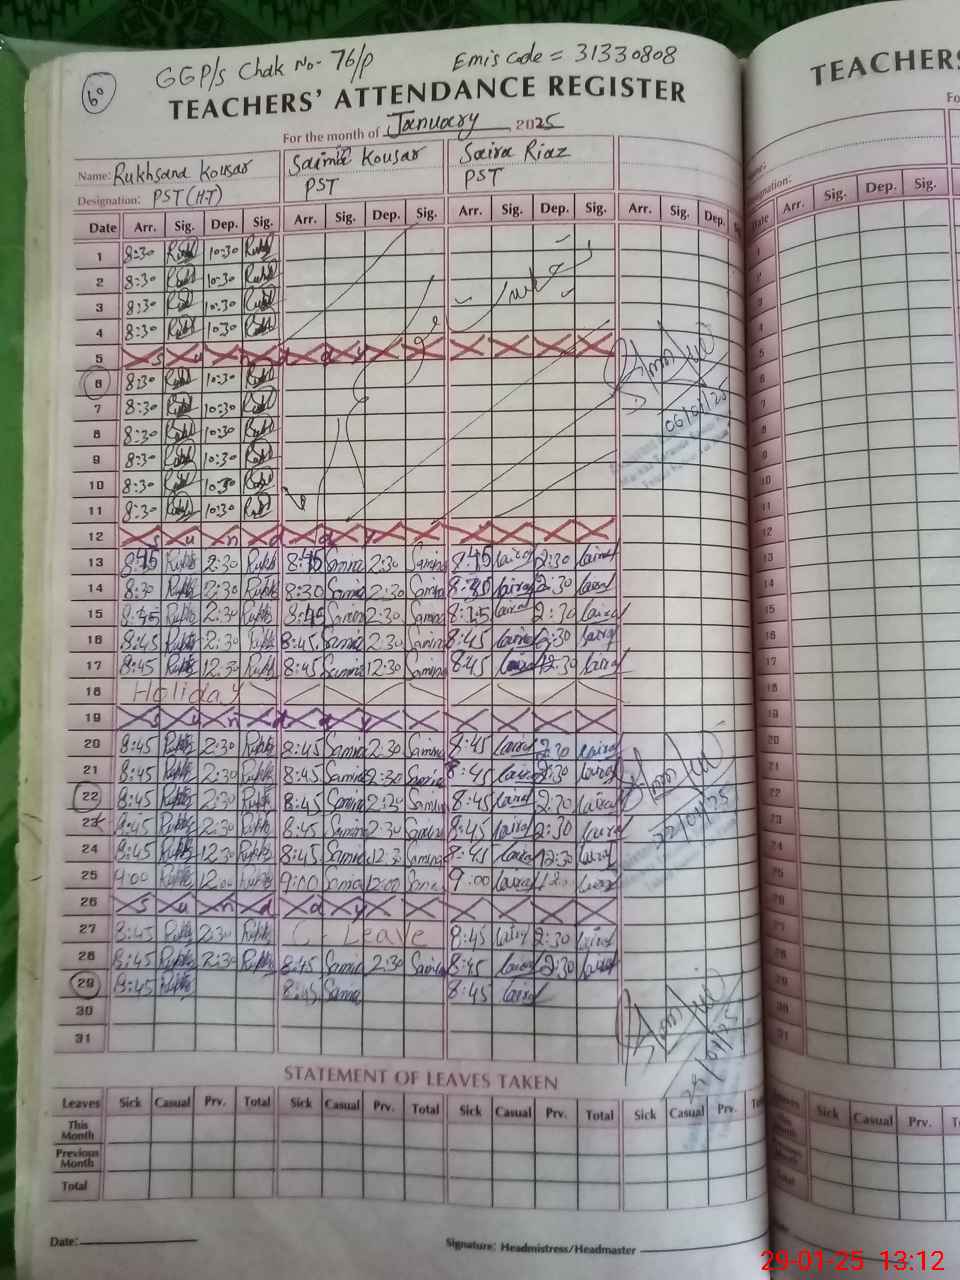 60
GGP/s Chak No- 76/p Emis Code = 31330808
TEACHERS' ATTENDANCE REGISTER
For the month of January 2025
Name: Rukhsana Kousar Samina Kousar Saira Riaz
Designation: PST(H.T) PST PST
Date Arr. Sig. Dep. Sig. Arr. Sig. Dep. Sig. Arr. Sig. Dep. Sig. Arr. Sig. Dep.
1 8:30 Rukh 10:30 Rukh
2 8:30 Rukh 10:30 Rukh
3 8:30 Rukh 10:30 Rukh
4 8:30 Rukh 10:30 Rukh
5 Sunday
6 8:30 Rukh 10:30 Rukh
7 8:30 Rukh 10:30 Rukh
8 8:30 Rukh 10:30 Rukh
9 8:30 Rukh 10:30 Rukh
10 8:30 Rukh 10:30 Rukh
11 8:30 Rukh 10:30 Rukh
06/01/25
12 Sunday
13 8:45 Rukh 2:30 Rukh 8:45 Samina 2:30 Samina 8:45 Saira 2:30 Saira
14 8:30 Rukh 2:30 Rukh 8:30 Samina 2:30 Samina 2:30 Saira
15 8:45 Rukh 2:30 Rukh 8:45 Samina 2:30 Samina 8:45 Saira 2:30 Saira
16 8:45 Rukh 2:30 Rukh 8:45 Samina 2:30 Samina 8:45 Saira 2:30 Saira
17 8:45 Rukh 12:30 Rukh 8:45 Samina 12:30 Samina 8:45 Saira 12:30 Saira
18 Holiday
19 Sunday
20 8:45 Rukh 2:30 Rukh 8:45 Samina 2:30 Samina 8:45 Saira 2:30 Saira
21 8:45 Rukh 2:30 Rukh 8:45 Samina 2:30 Samina 8:45 Saira 2:30 Saira
22 8:45 Rukh 2:30 Rukh 8:45 Samina 2:30 Samina 8:45 Saira 2:30 Saira
22/01/25
23 8:45 Rukh 2:30 Rukh 8:45 Samina 2:30 Samina 8:45 Saira 2:30 Saira
24 8:45 Rukh 12:30 Rukh 8:45 Samina 12:30 Samina 8:45 Saira 12:30 Saira
25 9:00 Rukh 12:00 Rukh 9:00 Samina 12:00 Samina 9:00 Saira Saira
26 Sunday
27 8:45 Rukh 2:30 Rukh C - Leave 8:45 Saira 2:30 Saira
28 8:45 Rukh 2:30 Rukh 8:45 Samina 2:30 Samina 8:45 Saira 2:30 Saira
29 8:45 Rukh 8:45 Samina 8:45 Saira
30
31
29/01/25
STATEMENT OF LEAVES TAKEN
Leaves Sick Casual Prv. Total Sick Casual Prv. Total Sick Casual Prv. Total Sick Casual Prv.
This Month
Previous Month
Total
Date: Signature: Headmistress/Headmaster
TEACHERS
Arr. Sig. Dep. Sig.
1
2
3
4
5
6
7
8
9
10
11
12
13
14
15
16
17
18
19
20
21
22
23
24
25
26
27
28
29
30
31
Sick Casual Prv.
29-01-25 13:12